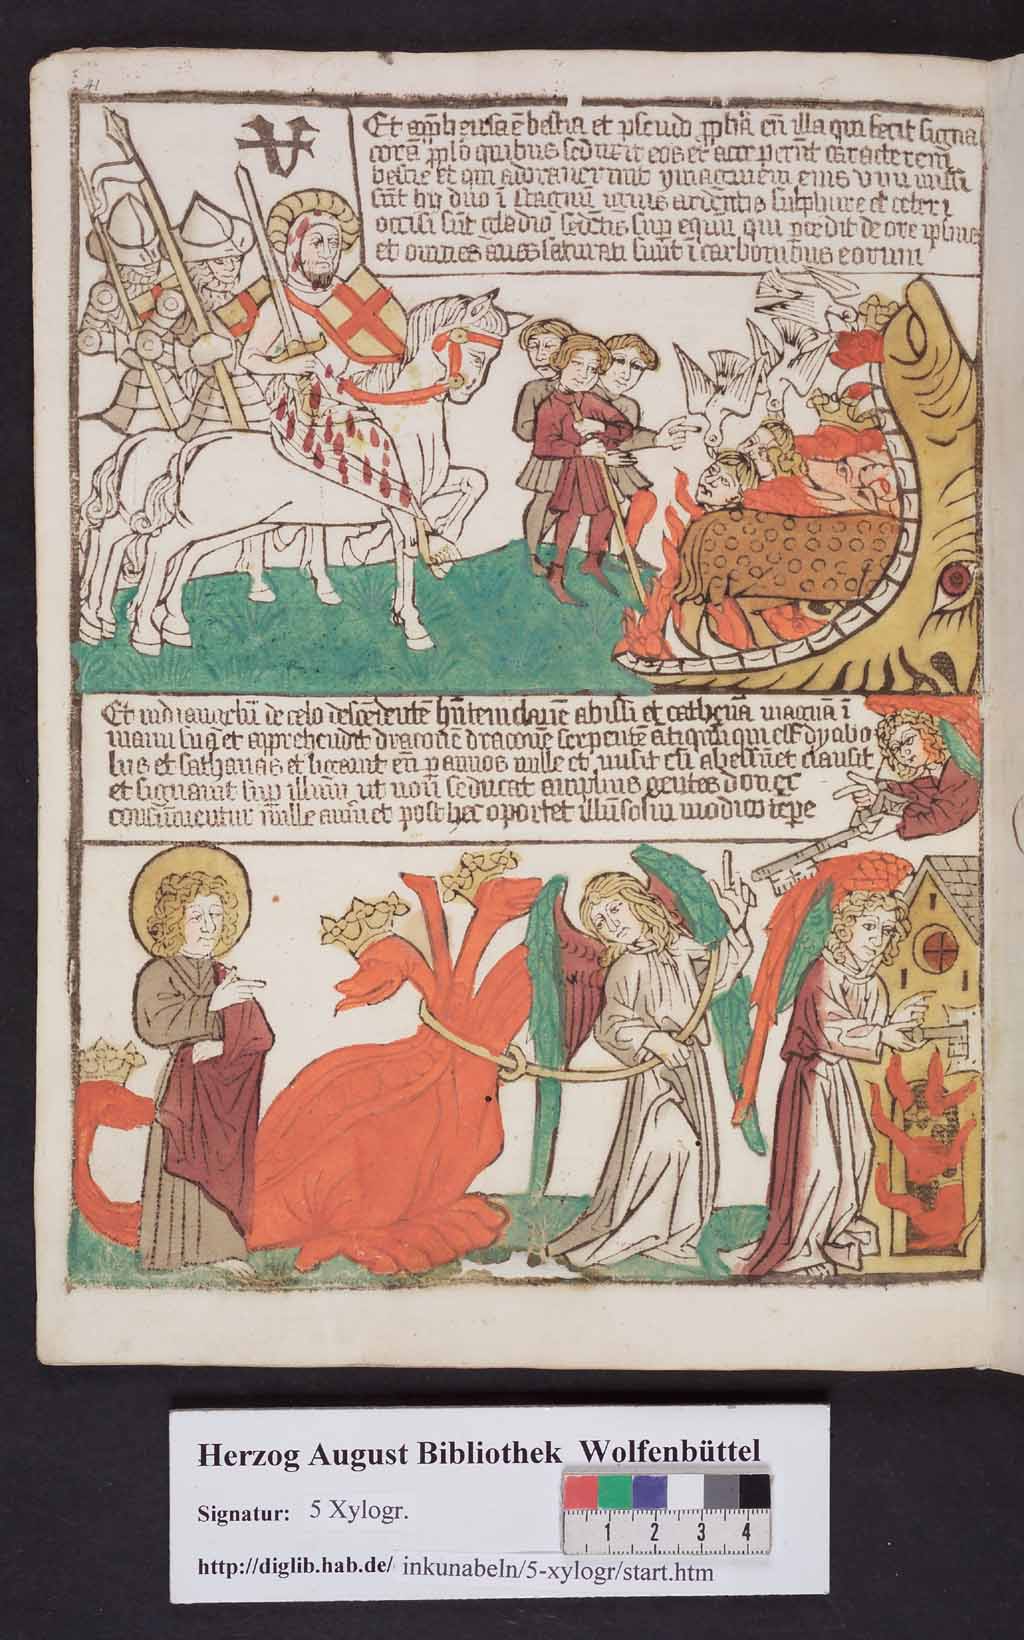 41
V
Et app̄hēusa ē bestia et pseudo p̄phā cū illa qui fecit signa
corā pplo quibus seduxit eos et acceperūt caracterem
bestie et qui adoraverunt ymaginem eius vivi missi
sūt hy duo ī stagnū ignis ardentis sulphure et ceteri
occisi sūt gladio sedētis sup equū qui pcedit de ore ipsius
et omnes aves saturati sunt ī carbonibus eorum
Et vidi angelū de celo descēdentē hn̄tem clauē abissi et cathenā magnā ī
manu sua et apprehendit draconē serpentē atiquū qui est dyabo
lus et sathanas et ligavit eū p annos mille et misit eū ī abessū et clausit
et signavit sup illum ut non seducat amplius gentes donec
consumentur mille anni et post hec oportet illū solui modico tēpe
Herzog August Bibliothek Wolfenbüttel
Signatur: 5 Xylogr.
1 2 3 4
http://diglib.hab.de/ inkunabeln/5-xylogr/start.htm